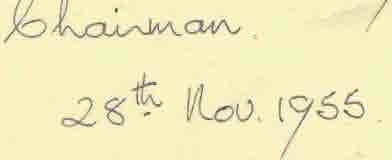 Chairman.
28th Nov. 1955.